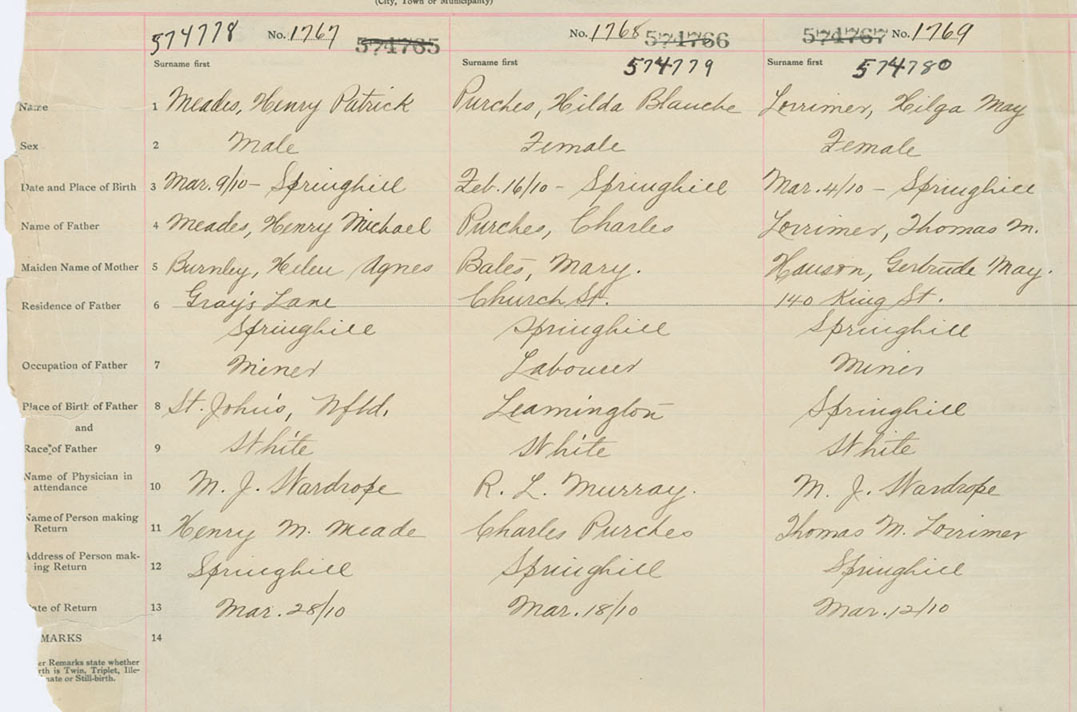 (City, Town or Municipality)
574778 No. 1767 574765 No. 1768 574766 574767 No. 1769
Surname first Surname first 574779 Surname first 574780
Name 1 Meades, Henry Patrick Purches, Hilda Blanche Lorrimer, Hilga May
Sex 2 Male Female Female
Date and Place of Birth 3 Mar. 9/10 - Springhill Feb. 16/10 - Springhill Mar. 4/10 - Springhill
Name of Father 4 Meades, Henry Michael Purches, Charles Lorrimer, Thomas M.
Maiden Name of Mother 5 Burnley, Helen Agnes Bates, Mary. Hauson, Gertrude May.
Residence of Father 6 Gray's Lane Church St. 140 King St.
Springhill Springhill Springhill
Occupation of Father 7 Miner Labourer Miner
Place of Birth of Father 8 St. John's, Nfld. Leamington Springhill
and
Race of Father 9 White White White
Name of Physician in
attendance 10 M. J. Wardrope R. L. Murray. M. J. Wardrope
Name of Person making
Return 11 Henry M. Meade Charles Purches Thomas M. Lorrimer
Address of Person mak-
ing Return 12 Springhill Springhill Springhill
ate of Return 13 Mar. 28/10 Mar. 18/10 Mar. 12/10
MARKS 14
er Remarks state whether
rth is Twin, Triplet, Ille-
nate or Still-birth.